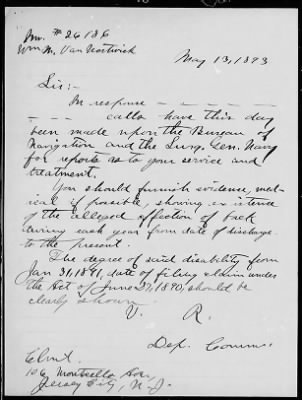 Inv. # 26186
Wm. H. Van Nostwick
May 13, 1893
Sir:-
In response — — — — — —
— — — calls have this day
been made upon the Bureau of
Navigation and the Surg. Gen. Navy
for reports as to your service and
treatment.
You should furnish evidence, med-
ical if possible, showing existence
of the alleged affection of back
during each year from date of discharge
to the present.
The degree of said disability from
Jan 31, 1891, date of filing claim under
the Act of June 27, 1890, should be
clearly shown.
V. R.
Dep. Commr.
Clmt.
106 Monticello Ave,
Jersey City, N. J.